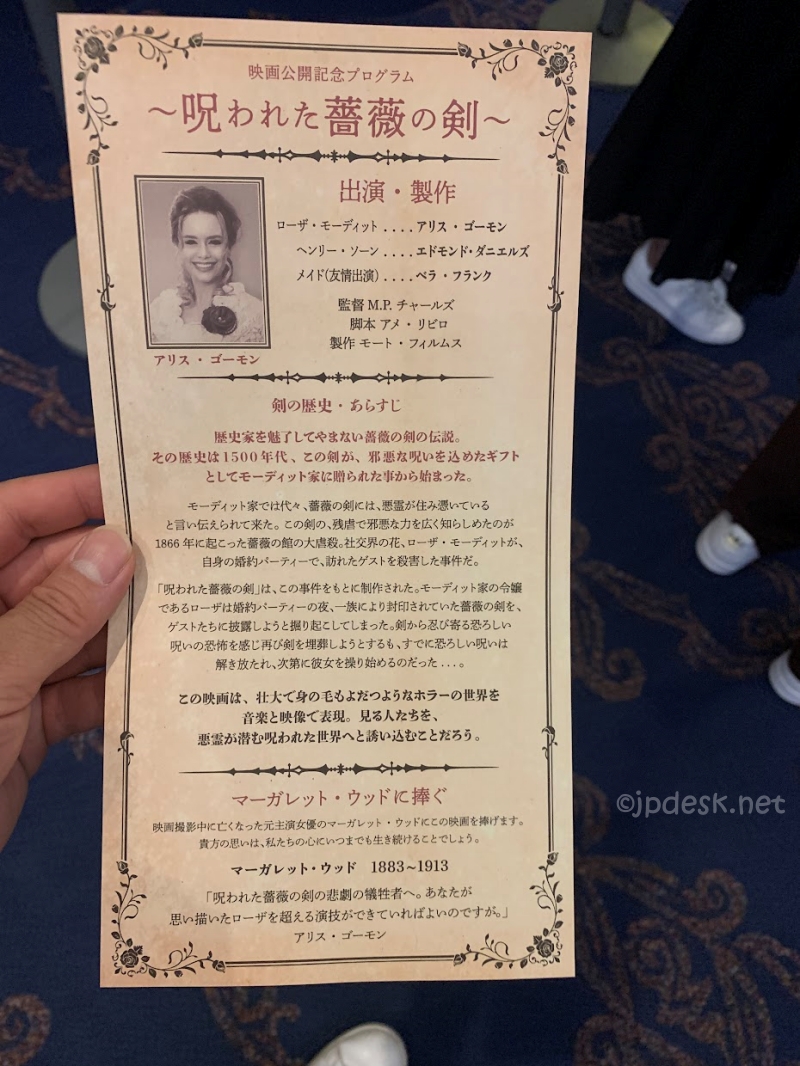 映画公開記念プログラム
～呪われた薔薇の剣～
出演・製作
ローザ・モーディット....アリス・ゴーモン
ヘンリー・ソーン....エドモンド・ダニエルズ
メイド(友情出演)....ベラ・フランク
監督 M.P. チャールズ
脚本 アメ・リビロ
製作 モート・フィルムス
アリス・ゴーモン
剣の歴史・あらすじ
歴史家を魅了してやまない薔薇の剣の伝説。
その歴史は1500年代、この剣が、邪悪な呪いを込めたギフト
としてモーディット家に贈られた事から始まった。
モーディット家では代々、薔薇の剣には、悪霊が住み憑いている
と言い伝えられて来た。この剣の、残虐で邪悪な力を広く知らしめたのが
1866年に起こった薔薇の館の大虐殺。社交界の花、ローザ・モーディットが、
自身の婚約パーティーで、訪れたゲストを殺害した事件だ。
「呪われた薔薇の剣」は、この事件をもとに制作された。モーディット家の令嬢
であるローザは婚約パーティーの夜、一族により封印されていた薔薇の剣を、
ゲストたちに披露しようと掘り起こしてしまった。剣から忍び寄る恐ろしい
呪いの恐怖を感じ再び剣を埋葬しようとするも、すでに恐ろしい呪いは
解き放たれ、次第に彼女を操り始めるのだった....。
この映画は、壮大で身の毛もよだつようなホラーの世界を
音楽と映像で表現。見る人たちを、
悪霊が潜む呪われた世界へと誘い込むことだろう。
マーガレット・ウッドに捧ぐ
映画撮影中に亡くなった元主演女優のマーガレット・ウッドにこの映画を捧げます。
貴方の思いは、私たちの心にいつまでも生き続けることでしょう。
マーガレット・ウッド 1883~1913
「呪われた薔薇の剣の悲劇の犠牲者へ。あなたが
思い描いたローザを超える演技ができていればよいのですが。」
アリス・ゴーモン
©jpdesk.net